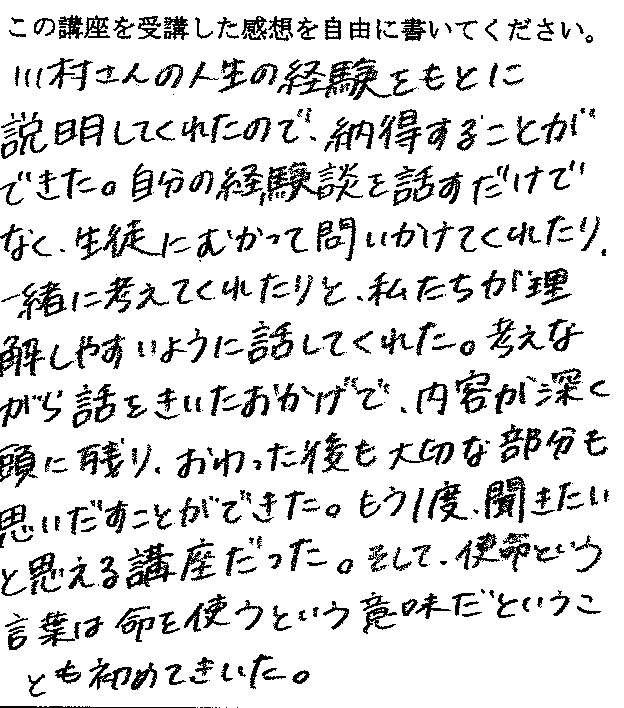 この講座を受講した感想を自由に書いてください。
川村さんの人生の経験をもとに
説明してくれたので、納得することが
できた。自分の経験談を話すだけで
なく、生徒にむかって問いかけてくれたり、
一緒に考えてくれたりと、私たちが理
解しやすいように話してくれた。考えな
がら話をきいたおかげで、内容が深く
頭に残り、おわった後も大切な部分も
思いだすことができた。もう1度、聞きたい
と思える講座だった。そして、使命という
言葉は命を使うという意味だというこ
とも初めてきいた。